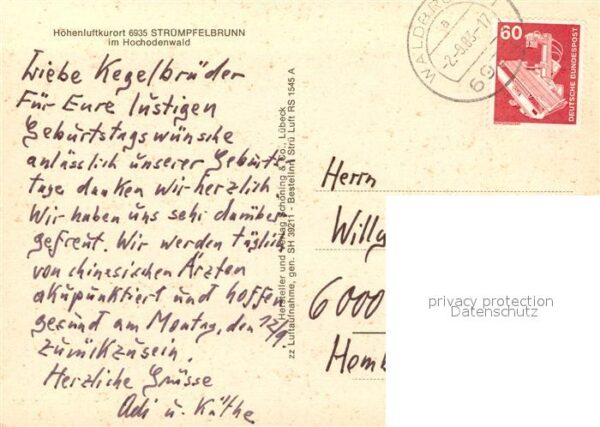 Höhenluftkurort 6935 STRÜMPFELBRUNN
im Hochodenwald
Liebe Kegelbrüder
Für Eure lustigen
Geburtstagswünsche
anlässlich unserer Geburts-
tage danken wir herzlich
Wir haben uns sehr darüber
gefreut. Wir werden täglich
von chinesischen Ärzten
akupunktiert und hoffen
gesund am Montag, den 12/9.
zurückzusein.
Herzliche Grüsse
Adi u. Käthe
Hersteller und Verlag Schöning & Co., Lübeck
zz Luftaufnahme, gen. SH 39211 - Bestellnr. Strü Luft RS 1545 A
WALDBR
a
-2.-9.83-17
69
60
DEUTSCHE BUNDESPOST
Herrn
Willy
6000
Homb
privacy protection
Datenschutz